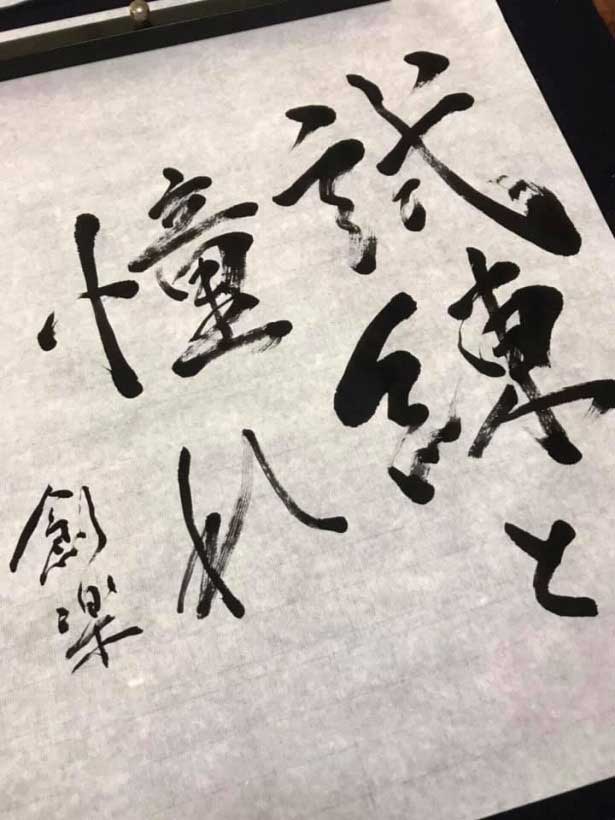 試練と
憧れ
創楽